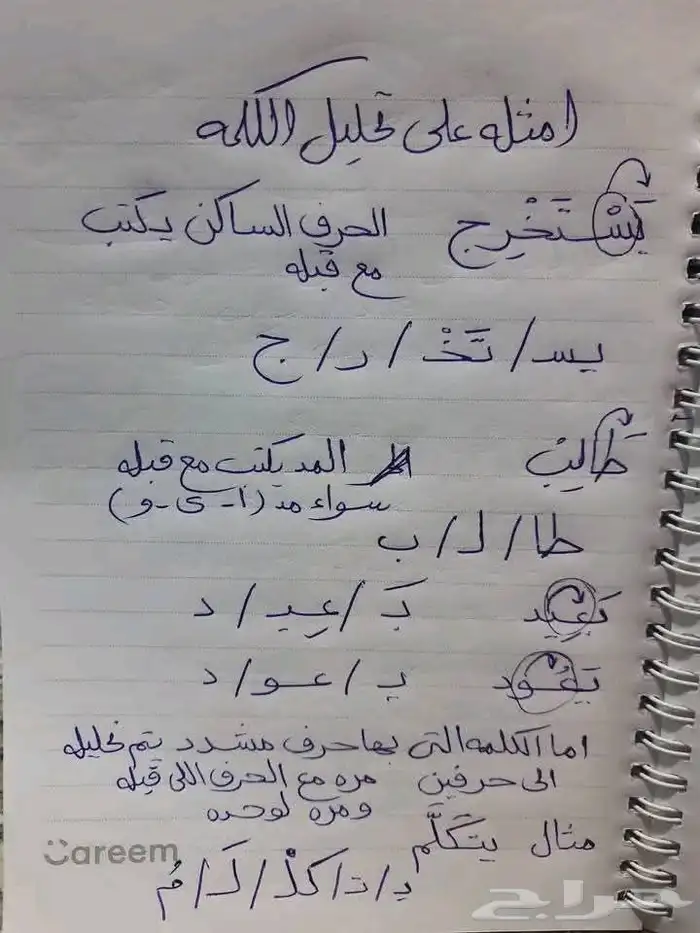 امثله على تحليل الكلمه
يَسْتَخْرِج الحرف الساكن يكتب
مع قبله
يسـ / تَخْـ / ر / ج
طَالِب المد يكتب مع قبله
سواء مد (ا - ى - و)
طا / لـ / ب
بَعِيد بَـ / عِيـ / د
يَعُود يـ / عـو / د
اما الكلمه التى بها حرف مشدد يتم تحليله
الى حرفين مره مع الحرف اللى قبله
ومره لوحده
مثال يتَكَلَّم
يـ / تـ / كلْ / لَـ / مُ
Careem
حراج